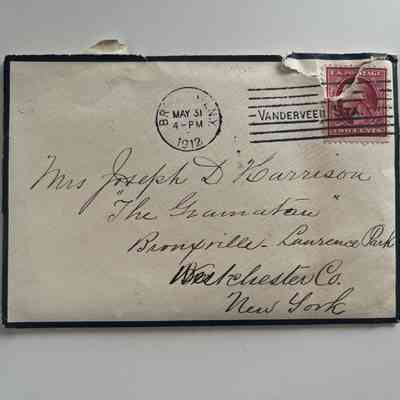 MAY 31
4-PM
1912
N.Y.
VANDERVEER STA.
U.S. POSTAGE
CENTS
Mrs Joseph D Harrison
"The Gramatan"
Bronxville - Lawrence Park
Westchester Co.
New York